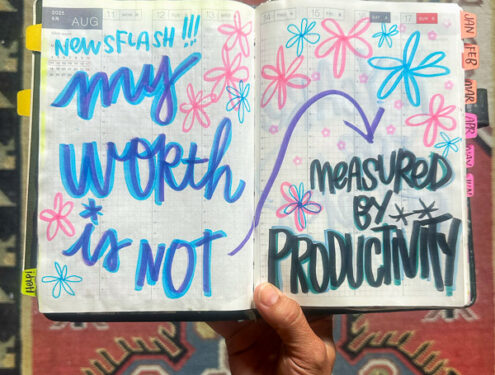 2025
AUG
11 MON
12 TUE
13
14
15
SAT
17 SUN
NEWSFLASH!!!
my
WORTH
is NOT
MEASURED
BY
PRODUCTIVITY
Help!
JAN
FEB
MAR
APR
MAY
JUN